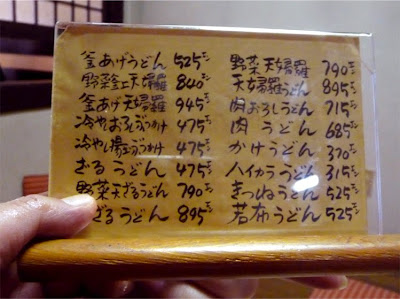 釜あげうどん 525
野菜釜上天婦羅 840
釜あげ天婦羅 945
冷やおろしぶっかけ 475
冷やし ぶっかけ 475
ざるうどん 475
野菜天ざるうどん 790
ざるうどん 895
野菜天婦羅 790
天婦羅うどん 895
肉おろしうどん 715
肉うどん 685
かけうどん 370
ハイカラうどん 315
きつねうどん 525
若布うどん 525